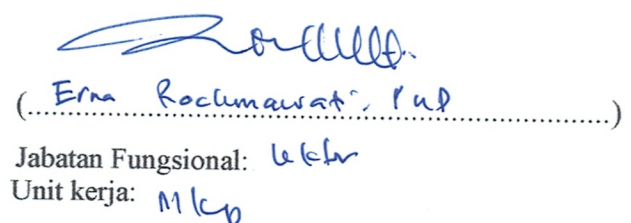 (Erna Rochmawati, PhD)
Jabatan Fungsional: Lektor
Unit kerja: MKep